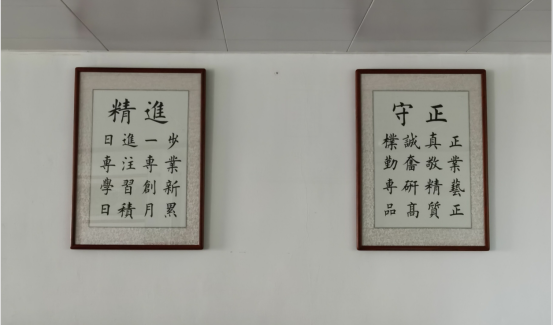 精進
日進一步
專注專業
學習創新
日積月累
守正
樸誠真正
勤奮敬業
專研精藝
品高質正